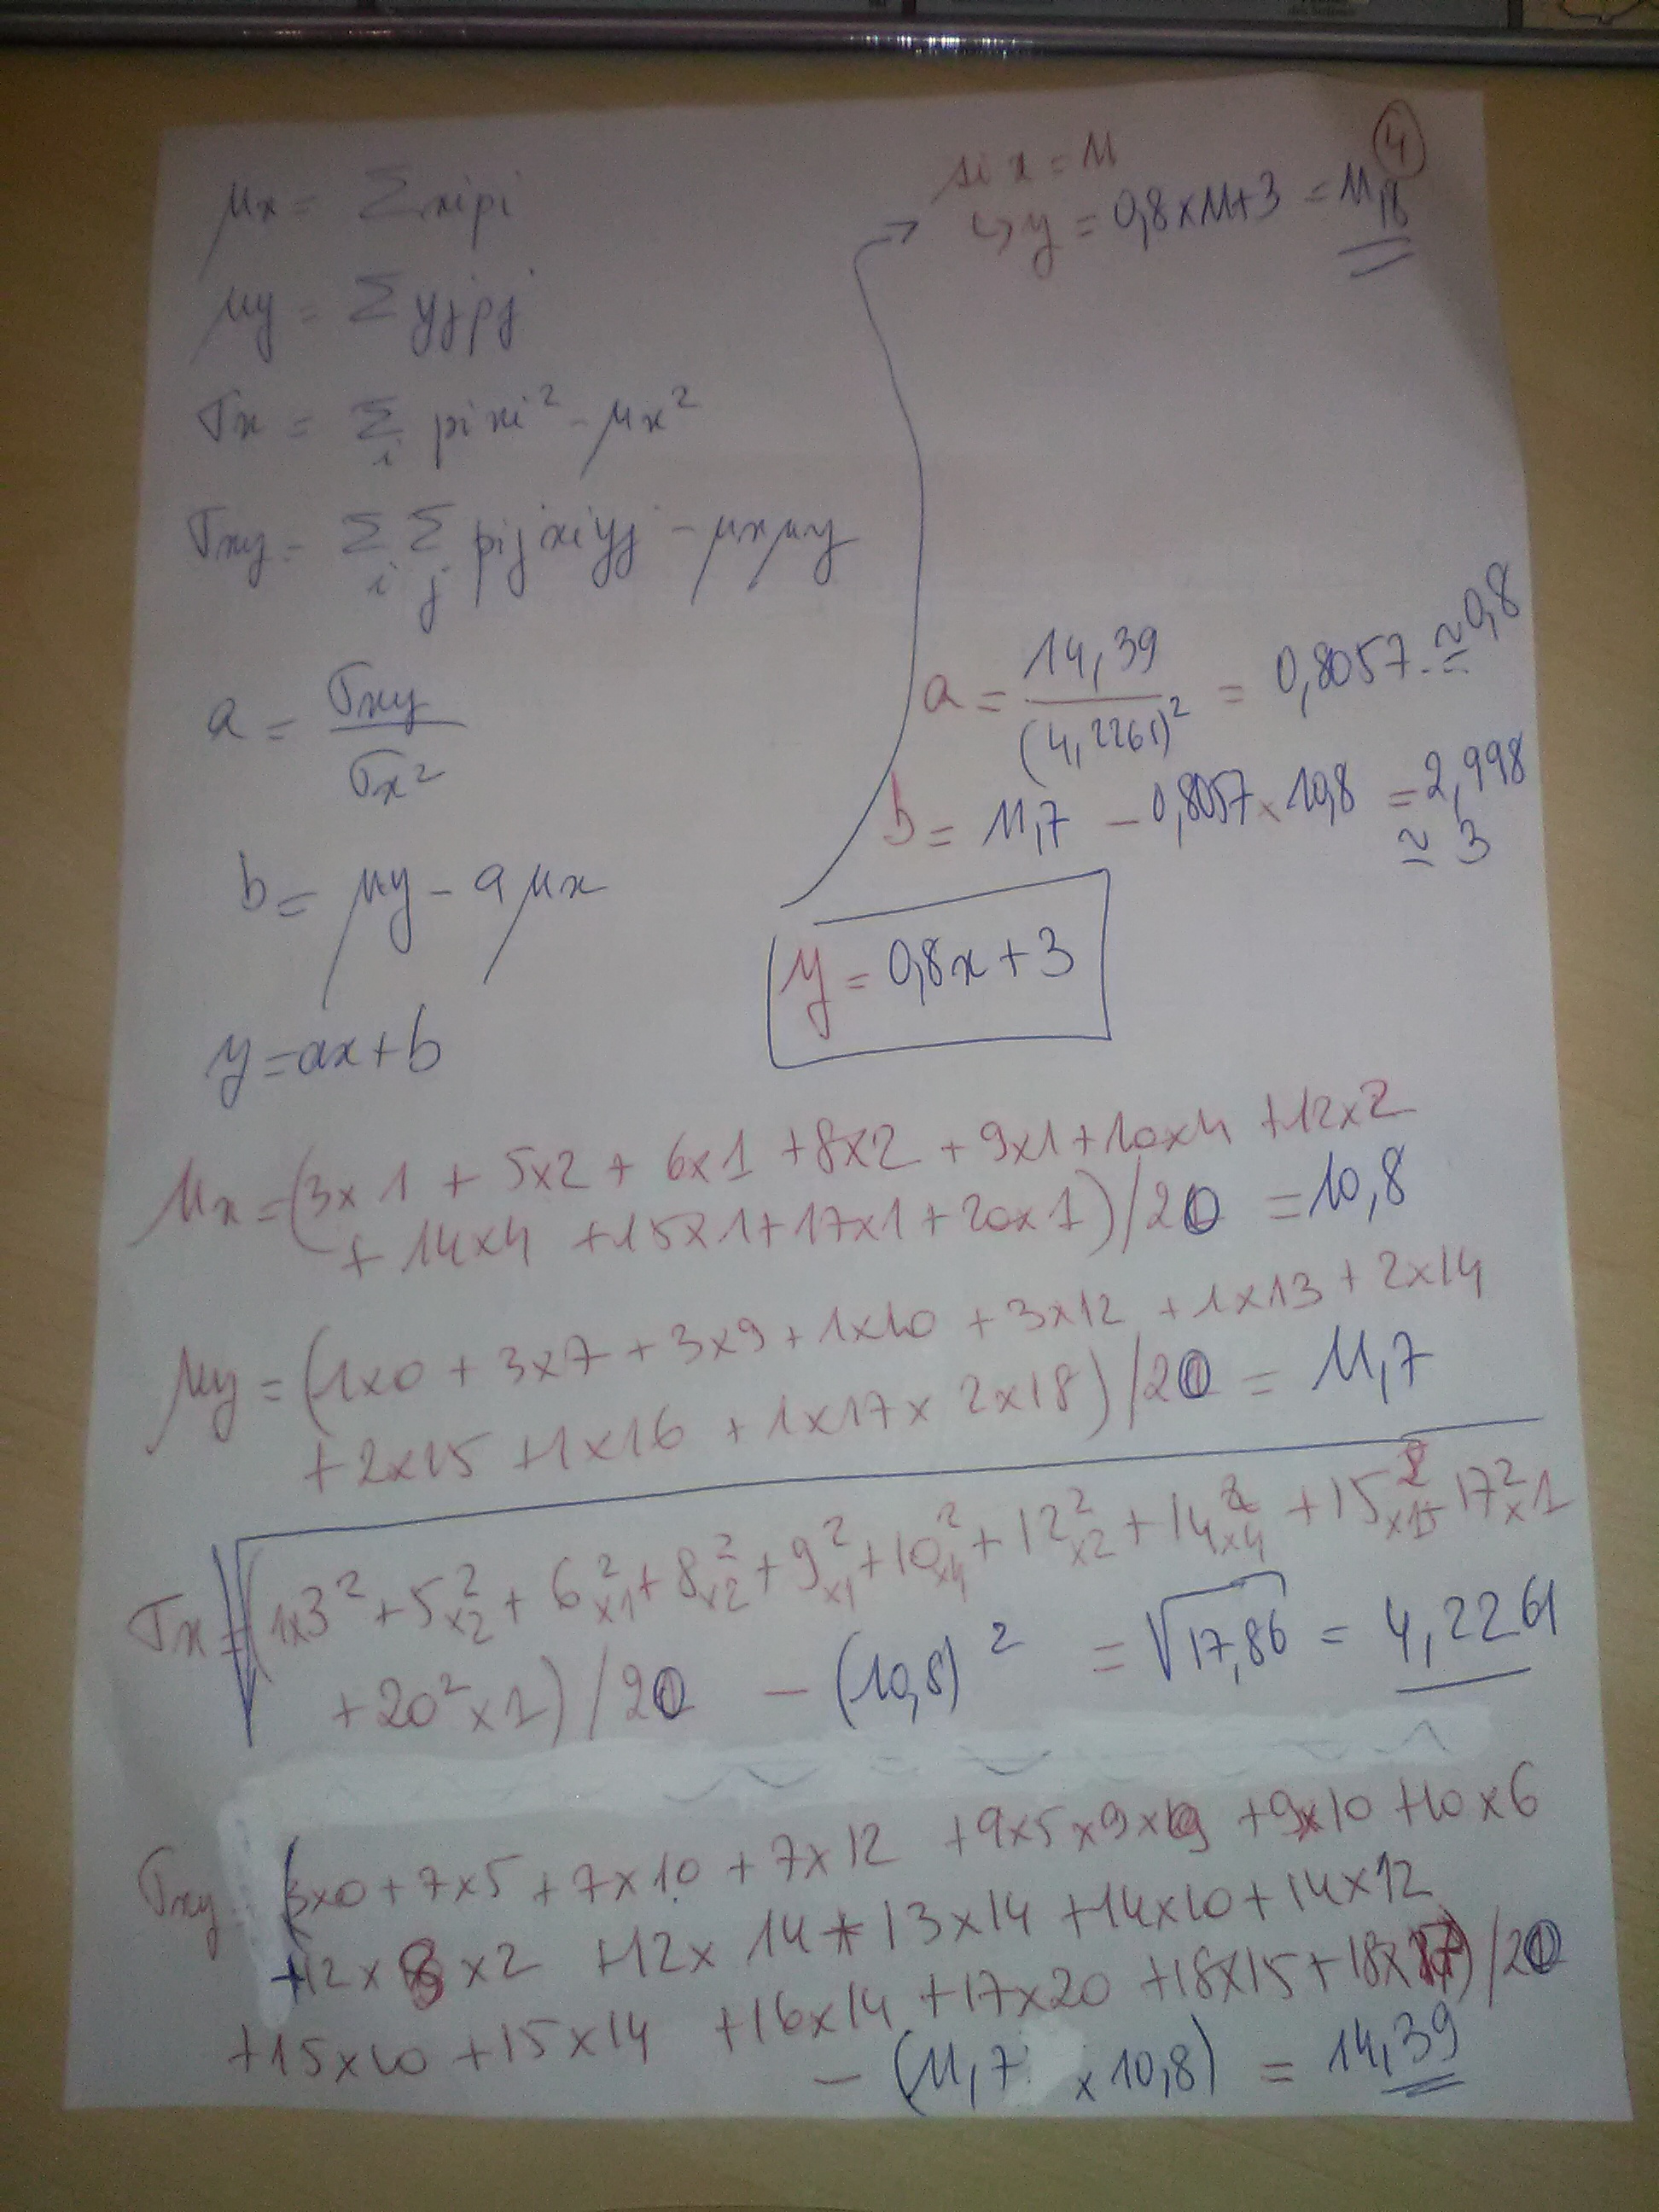 4
μx = Σxipi
μy = Σyjpj
σx = Σ pi xi² - μx²
i
σxy = Σ Σ pij xi yj - μxμy
i j
a = σxy / σx²
b = μy - aμx
y = ax + b
si x = 11
↳ y = 0,8 x 11 + 3 = 11,8
a = 14,39 / (4,2261)² = 0,8057 ≃ 0,8
b = 11,7 - 0,8057 x 10,8 = 2,998
≃ 3
y = 0,8x + 3
μx = (3x1 + 5x2 + 6x1 + 8x2 + 9x1 + 10x4 + 12x2
+ 14x4 + 15x1 + 17x1 + 20x1) / 20 = 10,8
μy = (1x0 + 3x7 + 3x9 + 1x10 + 3x12 + 1x13 + 2x14
+ 2x15 + 1x16 + 1x17 x 2x18) / 20 = 11,7
σx = √(1x3² + 5²x2 + 6²x1 + 8²x2 + 9²x1 + 10²x4 + 12²x2 + 14²x4 + 15²x15 17²x1
+ 20²x1) / 20 - (10,8)² = √17,86 = 4,2261
σxy (3x0 + 7x5 + 7x10 + 7x12 + 9x5 x 9x + 9x10 + 10x6
+ 12x8x2 + 12x14 + 13x14 + 14x10 + 14x12
+ 15x10 + 15x14 + 16x14 + 17x20 + 18x15 + 18x17) / 20
- (11,7 x 10,8) = 14,39